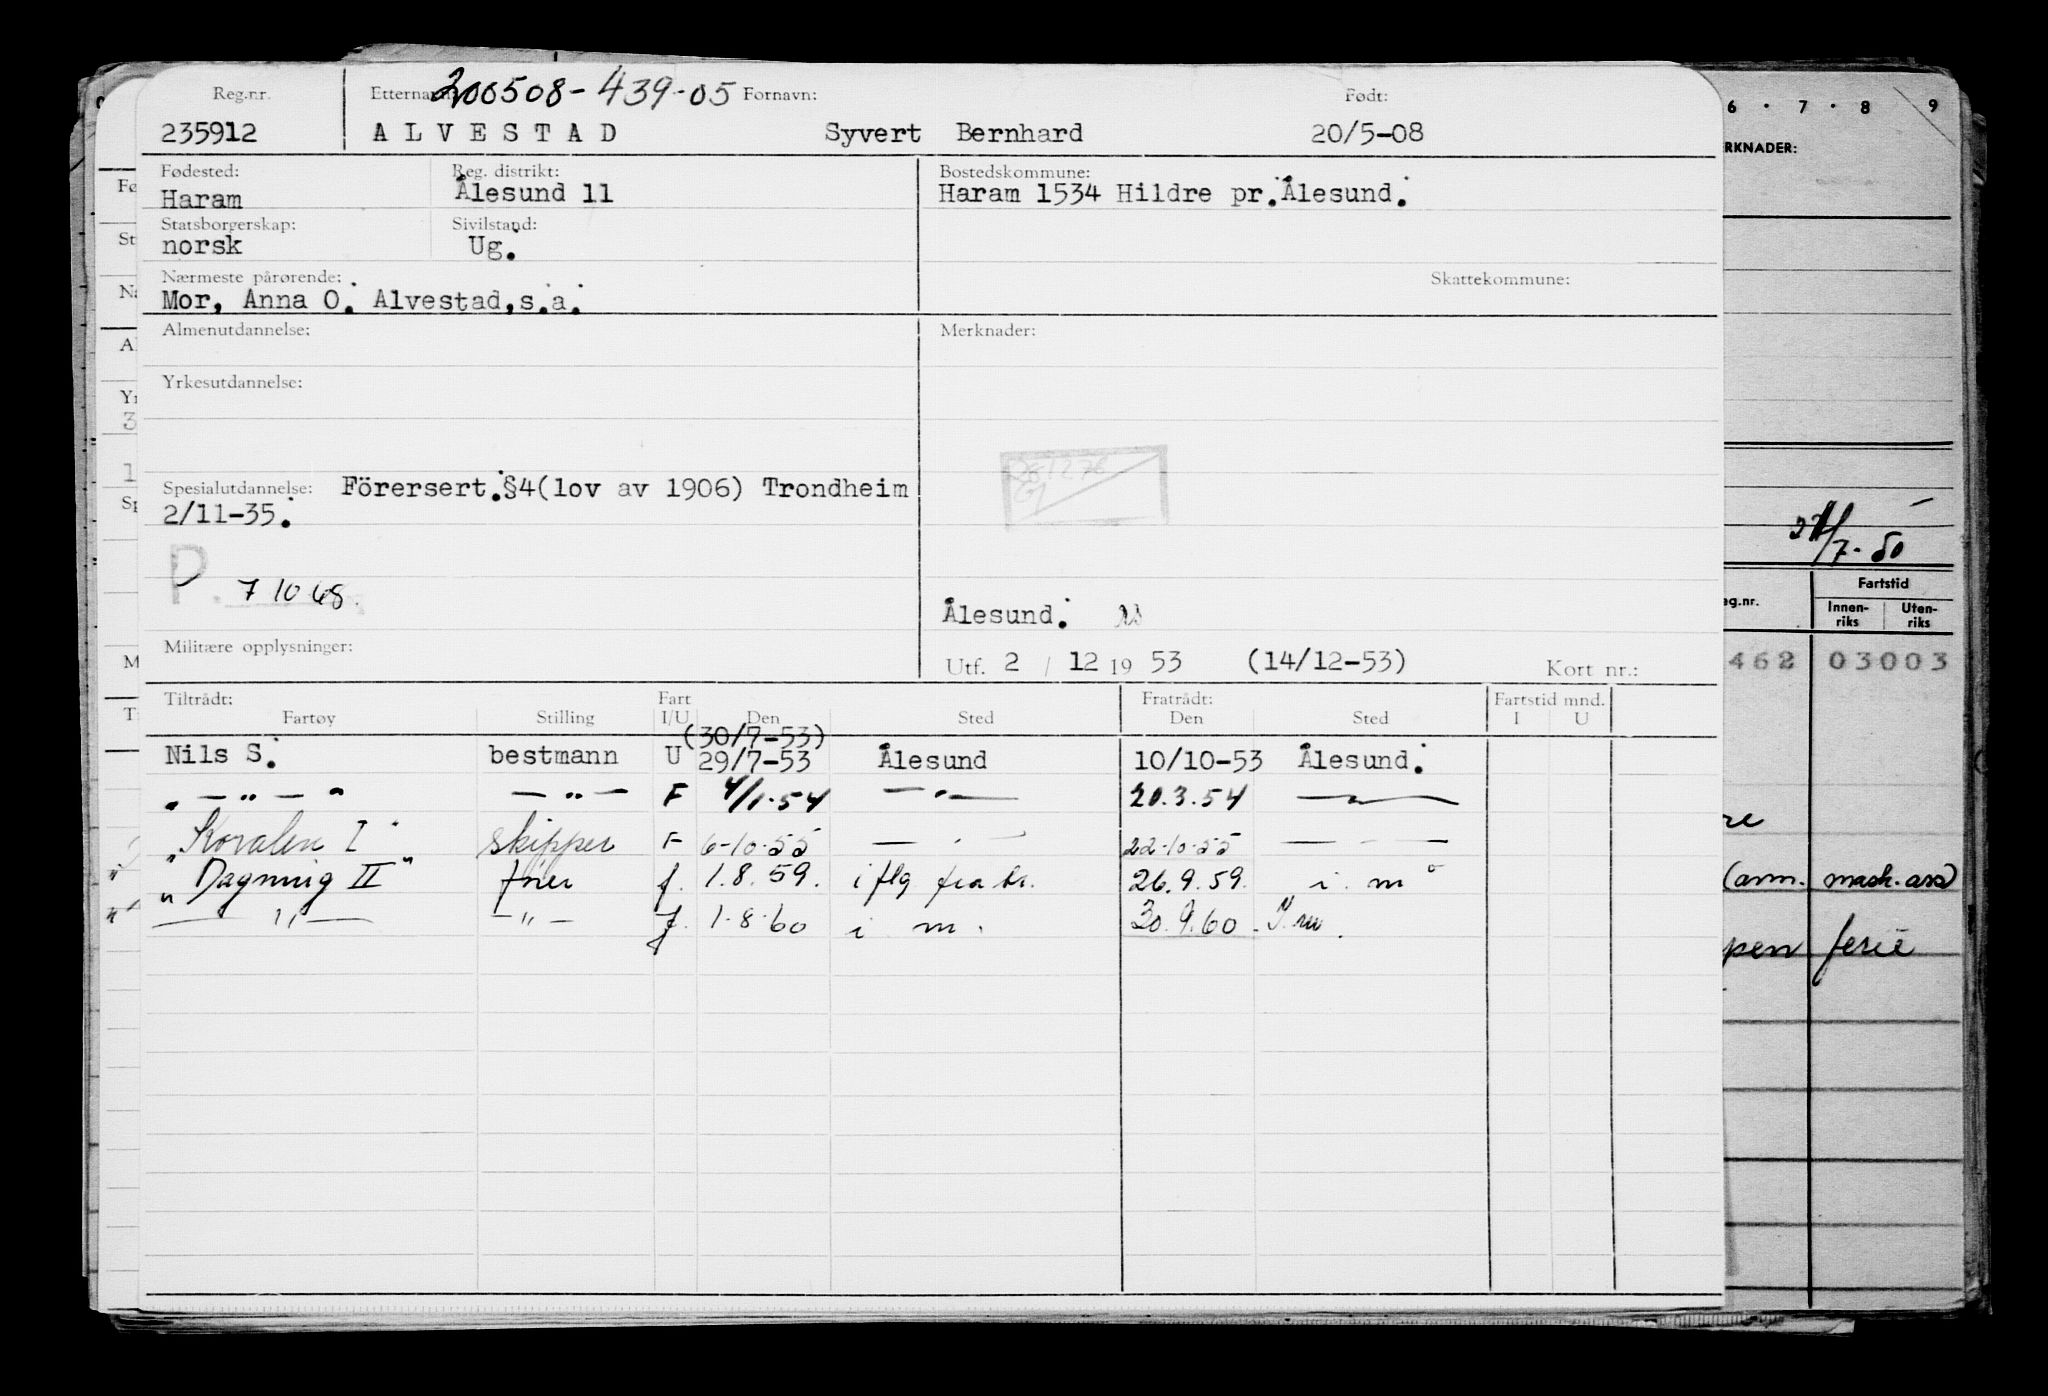 Reg.nr. Etternavn: 200508-439-05 Fornavn: Født:
235912 ALVESTAD Syvert Bernhard 20/5-08
Fødested: Reg. distrikt: Bostedskommune:
Haram Ålesund 11 Haram 1534 Hildre pr. Ålesund.
Statsborgerskap: Sivilstand:
norsk Ug.
Nærmeste pårørende: Skattekommune:
Mor, Anna O. Alvestad,s.a.
Almenutdannelse: Merknader:
Yrkesutdannelse:
Spesialutdannelse: Förersert.§4(lov av 1906) Trondheim
2/11-35.
P. 7 10 68.
Ålesund.
Militære opplysninger:
Utf. 2 / 12 19 53 (14/12-53) Kort nr.:
Tiltrådt: Fart Fratrådt: Fartstid mnd.
Fartøy Stilling I/U Den Sted Den Sted I U
(30/7-53)
Nils S. bestmann U 29/7-53 Ålesund 10/10-53 Ålesund.
" — " — " — " — F 4/1-54 — " — 20.3.54 — " —
"Kovalen I" skipper F 6-10-55 — " — 22-10-55 — " —
"Dagming II" f. 1.8.59. i flg 26.9.59. i. m
— " — — " — f. 1-8-60 i m. 30.9.60 - I. m.
6 · 7 · 8 9
RKNADER:
/7-50
Fartstid
g.nr. Innen-riks Uten-riks
462 03003
re
(ann. mask. ass
pen ferie